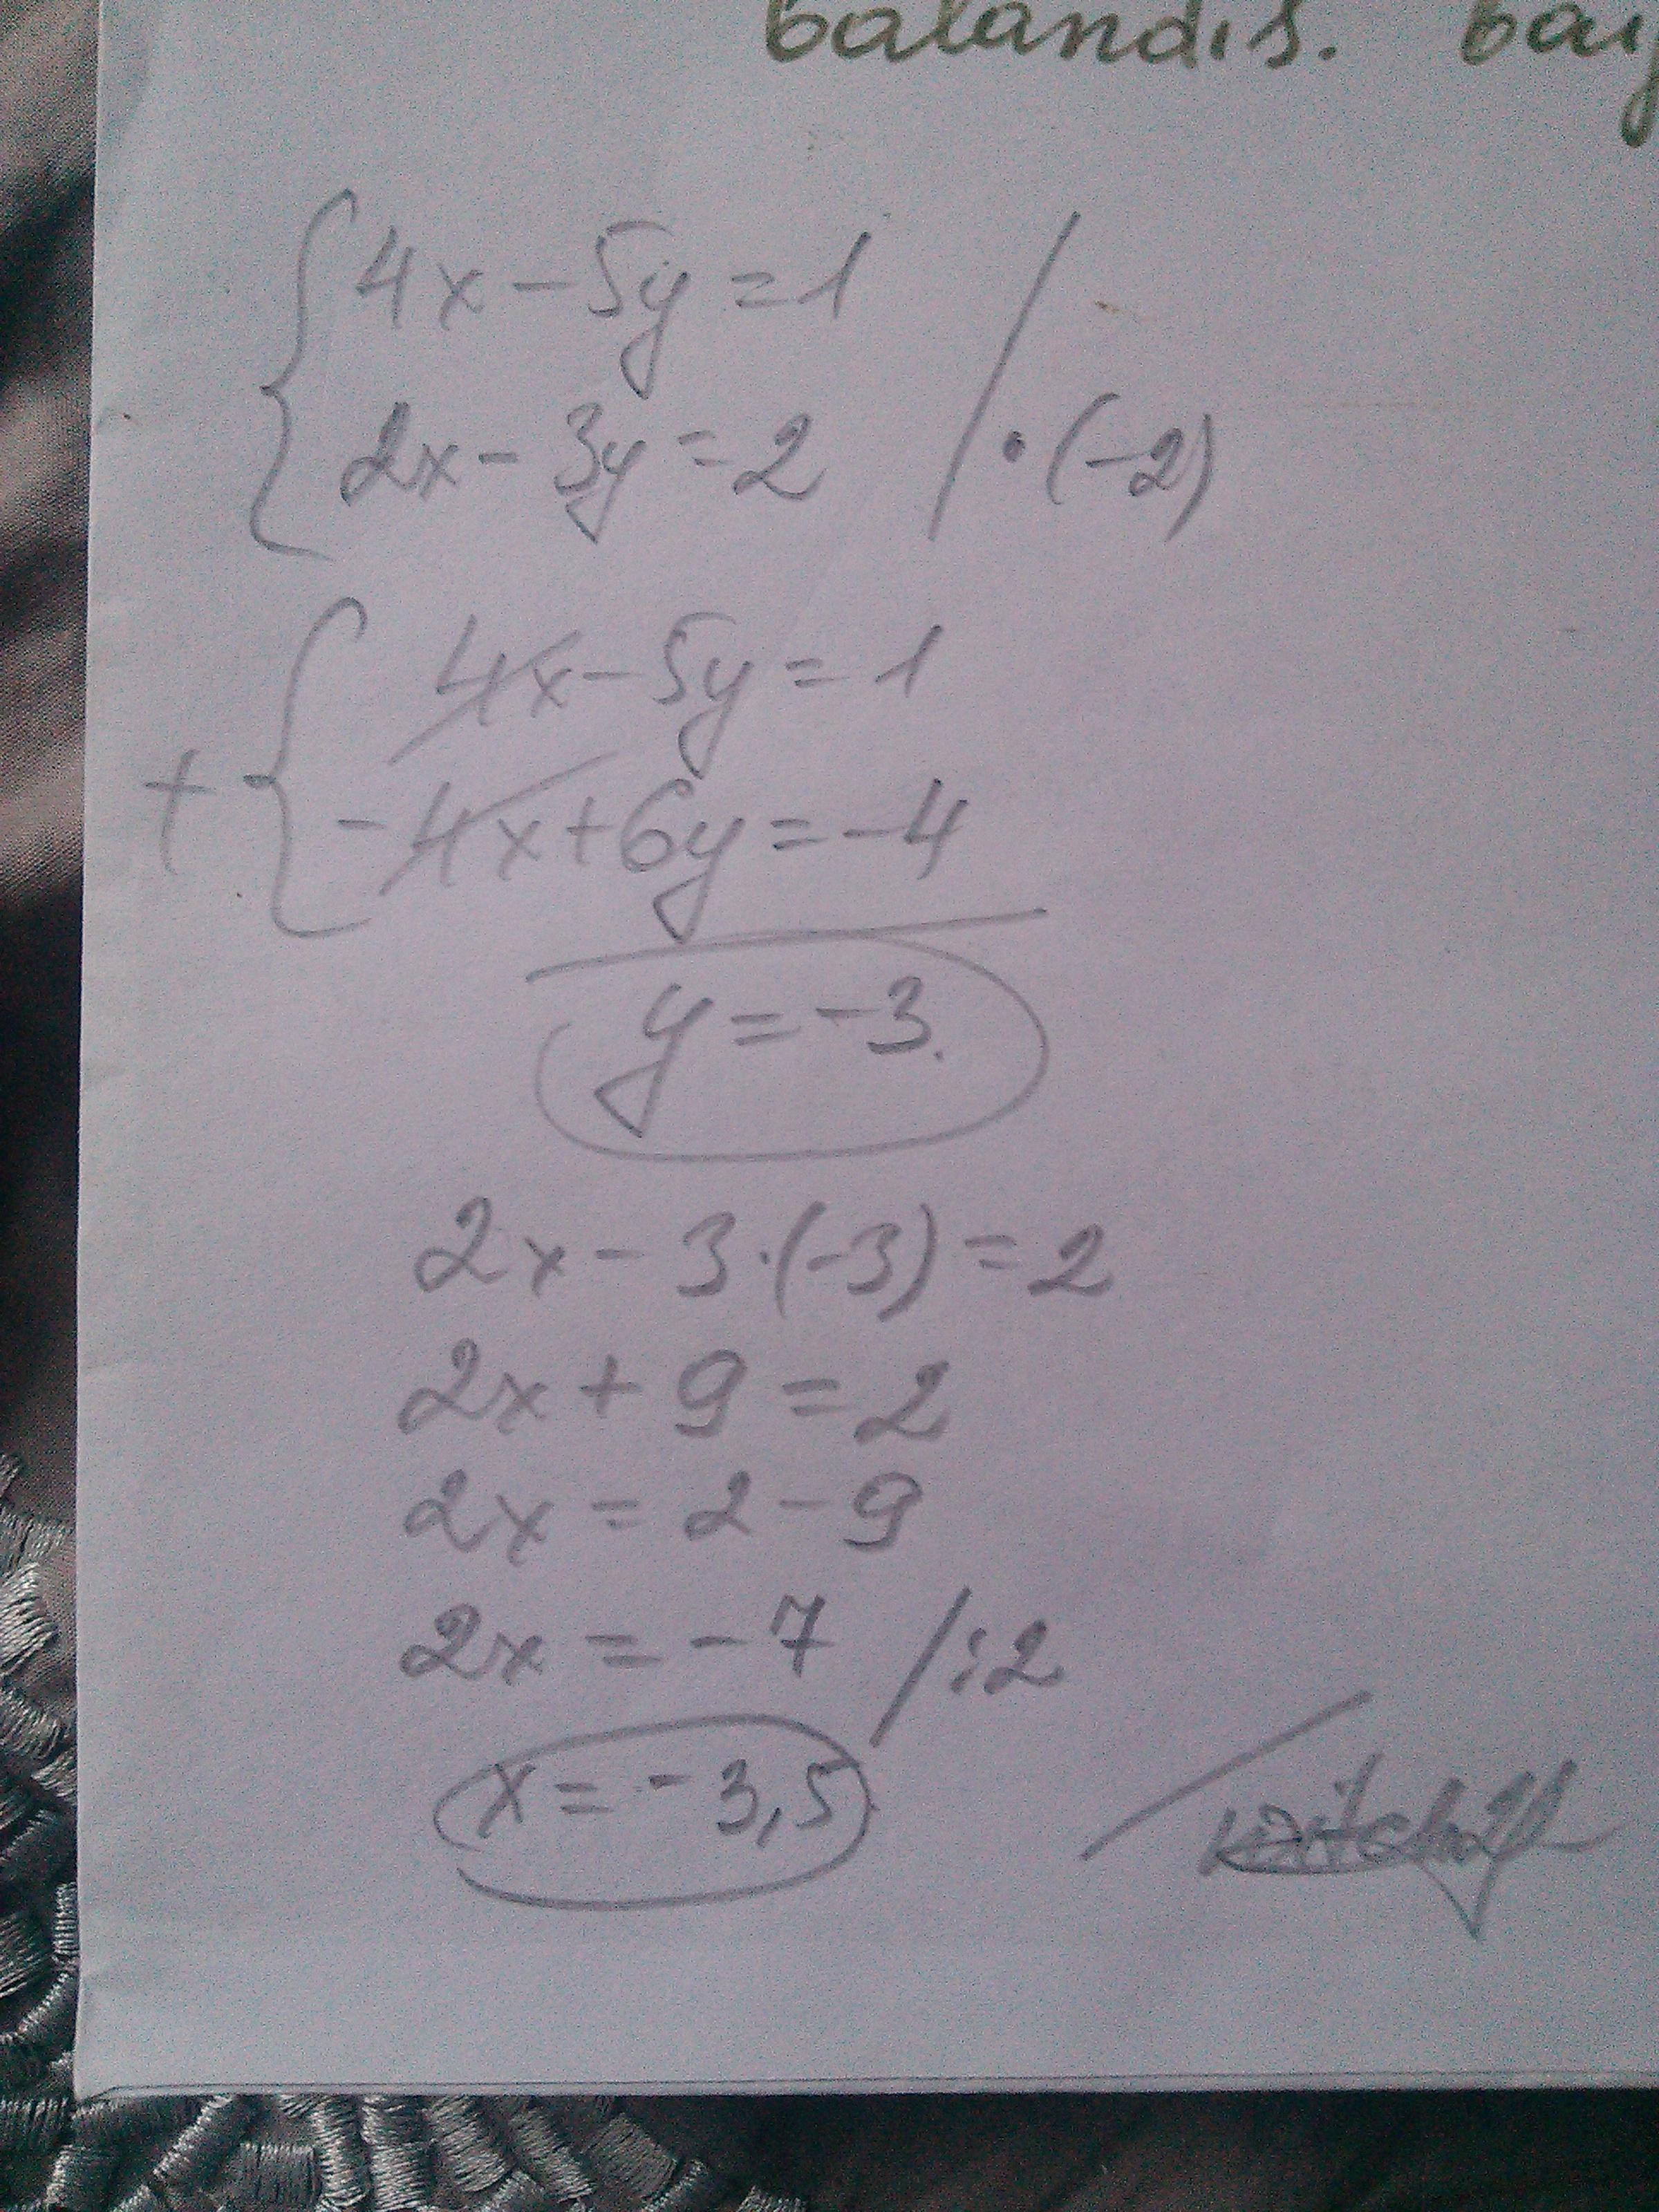 balandis.
{4x - 5y = 1
2x - 3y = 2 / · (-2)
+ {4x - 5y = 1
-4x + 6y = -4
y = -3.
2x - 3·(-3) = 2
2x + 9 = 2
2x = 2 - 9
2x = -7 /:2
x = -3,5